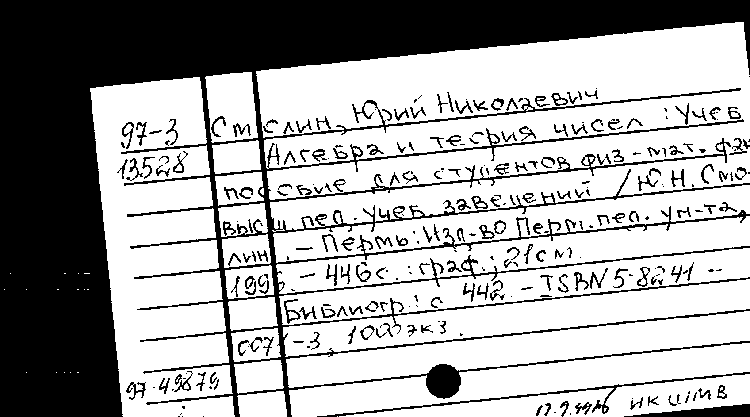 97-3 Смолин, Юрий Николаевич
13528 Алгебра и теория чисел : Учеб
пособие для студентов физ-мат. фак
высш. пед. учеб. заведений / Ю.Н. Смо-
лин. - Пермь: Изд-во Перм. пед. ун-та,
1996. - 446 с. : граф.; 21 см
Библиогр: с 442. - ISBN 5-8241-
007 -3, 1000 экз.
97-49879